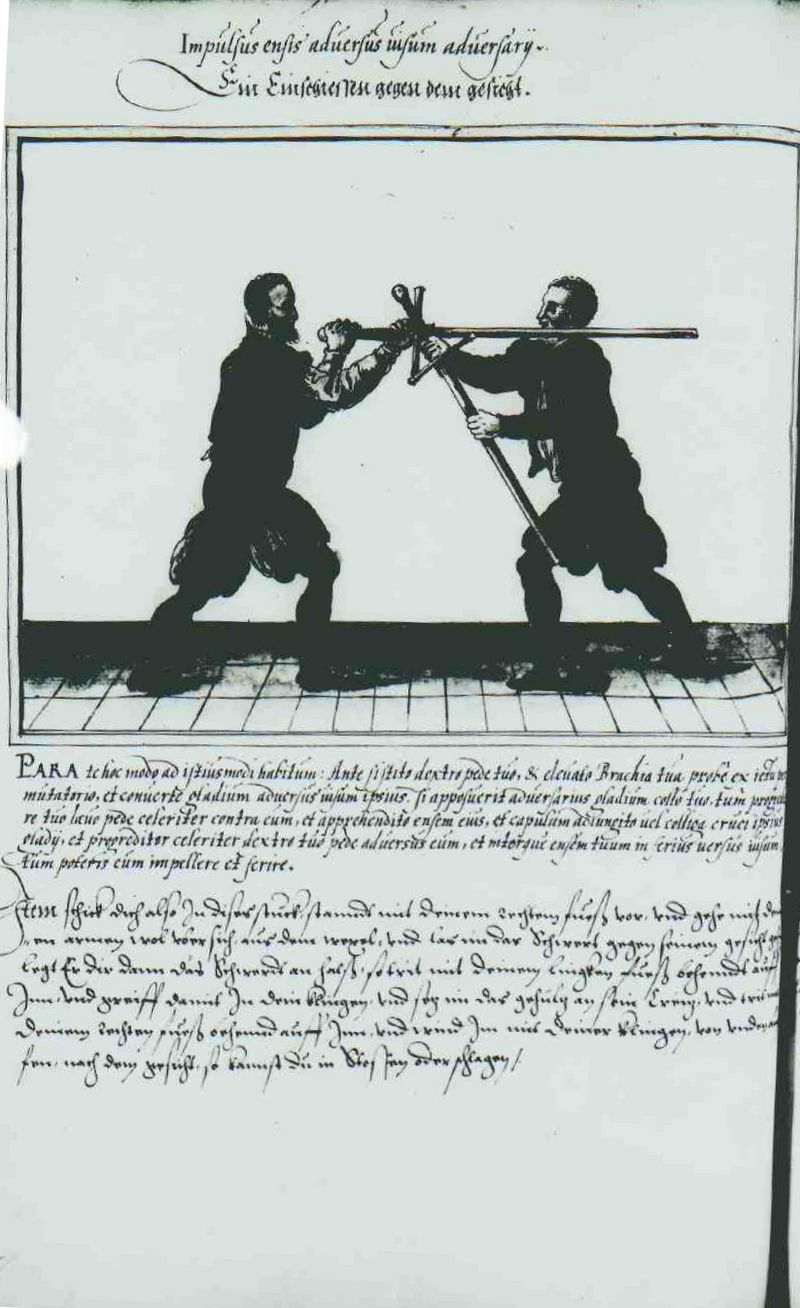 Impulsus ensis adversus uisum adversarij.
Ein Einschiessen gegen dem gesicht.
PARA te hoc modo ad istiusmodi habitum: Ante sistito dextro pede tuo, & eleuato Brachia tua probe ex ictu
mutatorio, et conuerte gladium adversus uisum ipsius. si apposuerit adversarius gladium collo tuo. tum
re tuo laeuo pede celeriter contra eum, et apprehendito ensem eius, et capulum adiungito uel colliga cruci ipsius
gladij, et progreditor celeriter dextro tuo pede adversus eum, et intorque ensem tuum inferius uersus uisum,
tum poteris eum impellere et ferire.
Item schick dich also In diser stuck, stannd mit deinem rechtem fuess vor, vnd gehe mit
en armen wol vber sich, aus dem wexel, vnd las im das Schwert gegen seinem gesicht
legt Er dir dann das Schwerdt an halss, so trit mit deinem lingken fuess behendt auff
Inn, vnd greiff damit In dein klingen, vnd setz im das gehultz an sein Creutz, vnd
deinem rechten fuess behennd auff Inn, vnd wind Im mit deiner klingen, von
fen, nach dem gesicht, so kannst du in Stossen oder schlagen /.